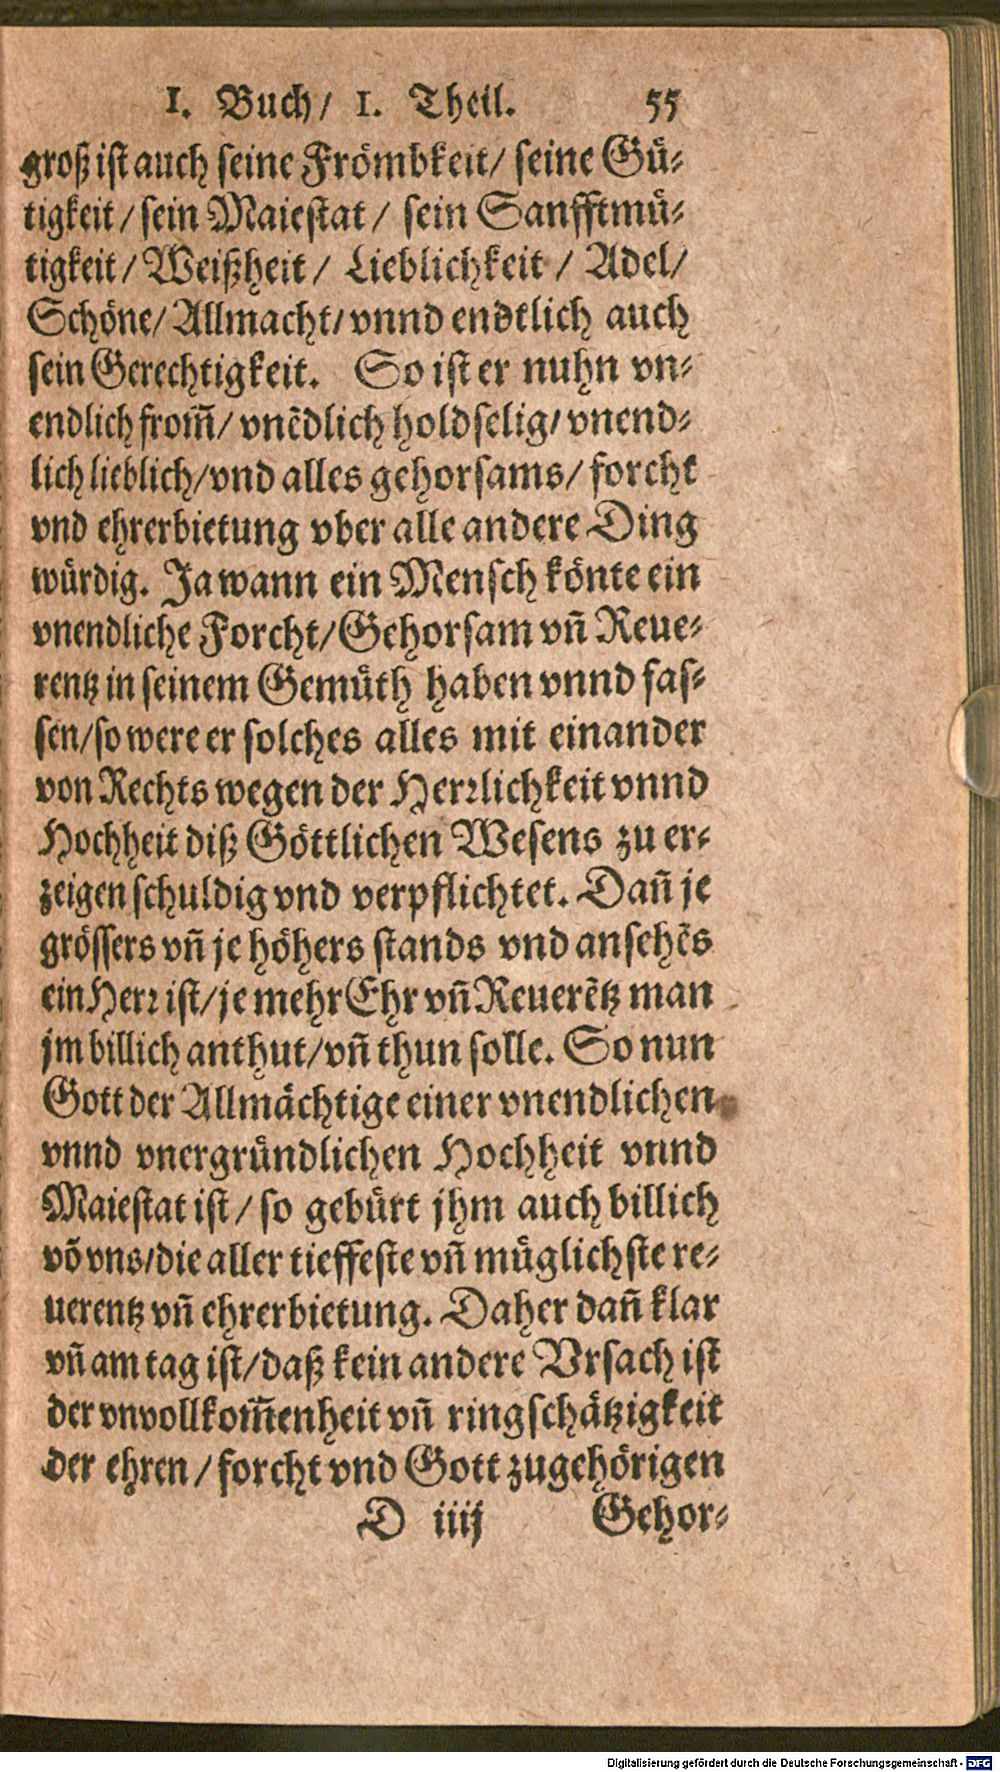 1. Buch/ 1. Theil. 55
groß ist auch seine Frömbkeit/ seine Gü-
tigkeit/ sein Maiestat/ sein Sanfftmü-
tigkeit/ Weißheit/ Lieblichkeit/ Adel/
Schöne/ Allmacht/ vnnd endtlich auch
sein Gerechtigkeit. So ist er nuhn vn-
endlich from̄/ vnẽdlich holdselig/ vnend-
lich lieblich/ vnd alles gehorsams/ forcht
vnd ehrerbietung vber alle andere Ding
würdig. Ja wann ein Mensch könte ein
vnendliche Forcht/ Gehorsam vñ Reue-
rentz in seinem Gemüth haben vnnd fas-
sen/ so were er solches alles mit einander
von Rechts wegen der Herrlichkeit vnnd
Hochheit diß Göttlichen Wesens zu er-
zeigen schuldig vnd verpflichtet. Dañ je
grössers vñ je höhers stands vnd ansehẽs
ein Herr ist/ je mehr Ehr vñ Reuerẽtz man
jm billich anthut/ vñ thun solle. So nun
Gott der Allmächtige einer vnendlichen
vnnd vnergründlichen Hochheit vnnd
Maiestat ist/ so gebürt jhm auch billich
võ vns/ die aller tieffeste vñ müglichste re-
uerentz vñ ehrerbietung. Daher dañ klar
vñ am tag ist/ daß kein andere Vrsach ist
der vnvollkom̄enheit vñ ringschätzigkeit
der ehren/ forcht vnd Gott zugehörigen
D iiij Gehor-
Digitalisierung gefördert durch die Deutsche Forschungsgemeinschaft - DFG